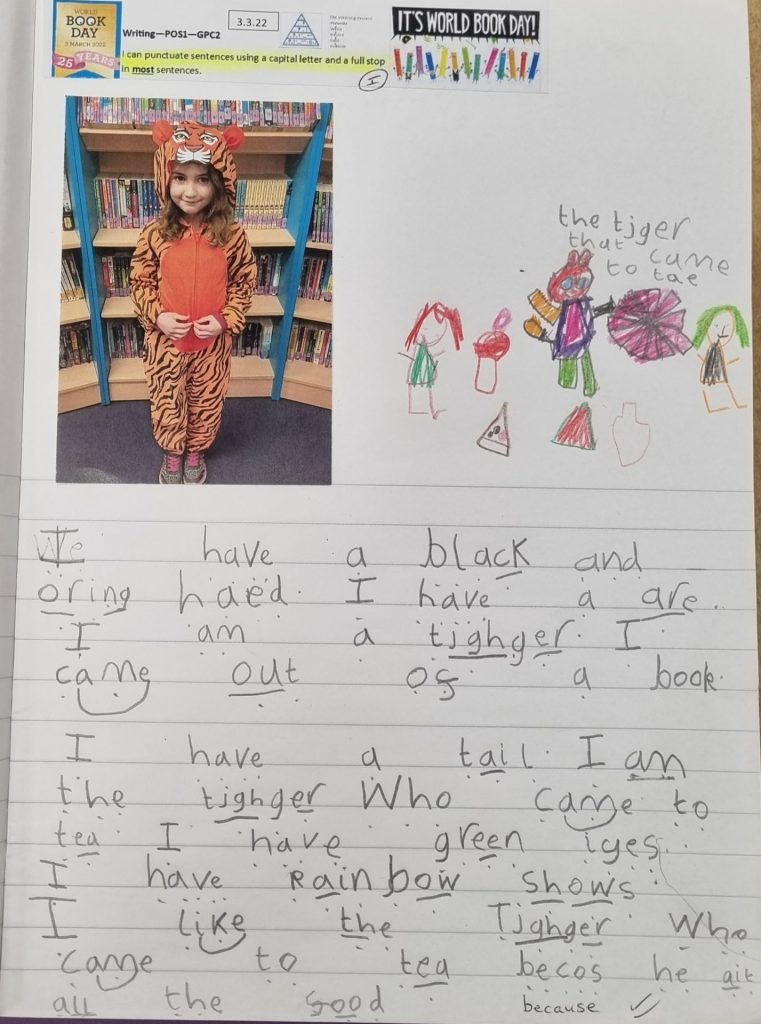 WORLD
BOOK
DAY
3 MARCH 2022
25 YEARS
Writing—POS1—GPC2
3.3.22
I can punctuate sentences using a capital letter and a full stop
in most sentences.
I
IT'S WORLD BOOK DAY!
the tjger
that came
to tae
We have a black and
oring haed. I have a are.
I am a tjghger. I
came out os a book.
I have a tail. I am
the tjghger Who came to
tea. I have green iyes.
I have Rainbow shows.
I like the Tjghger Who
came to tea becos he ait
all the sood
because